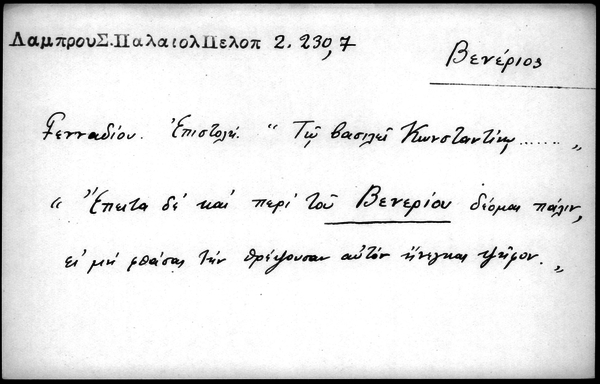 ΛαμπρουΣ.ΠαλαιολΠελοπ 2. 230,7
Βενέριος
Γενναδίου. Ἐπιστολή. "Τῷ βασιλεῖ Κωνσταντίνῳ ...... "
"Ἔπειτα δέ καί περί τοῦ Βενερίου δέομαι πάλιν,
εἰ μή φθάσας τήν θρέψουσαν αὐτόν ἤνεγκας ψῆφον."